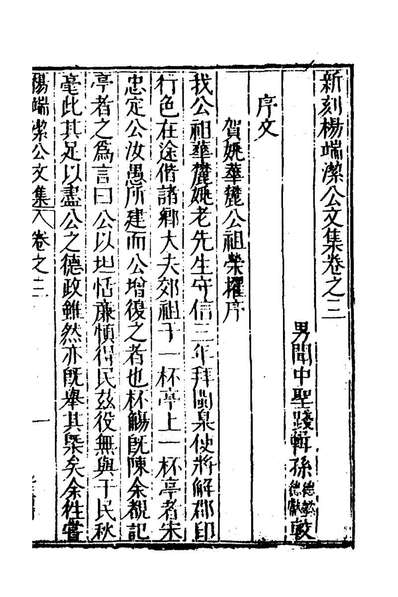 新刻楊端潔公文集卷之三
男聞中聖踐輯孫較
序文
賀姚華麓公祖榮擢序
我公祖華麓姚老先生守信三年拜閩臬使將解郡印
行色在途偕諸鄉大夫郊祖于一杯亭上一杯亭者宋
忠定公汝愚所建而公增復之者也杯觴既陳余覩記
亭者之為言曰公以坦恬廉慎得民茲役無與于民秋
毫此其足以盡公之德政雖然亦既舉其槩矣余往嘗
楊端潔公文集 卷之三 一